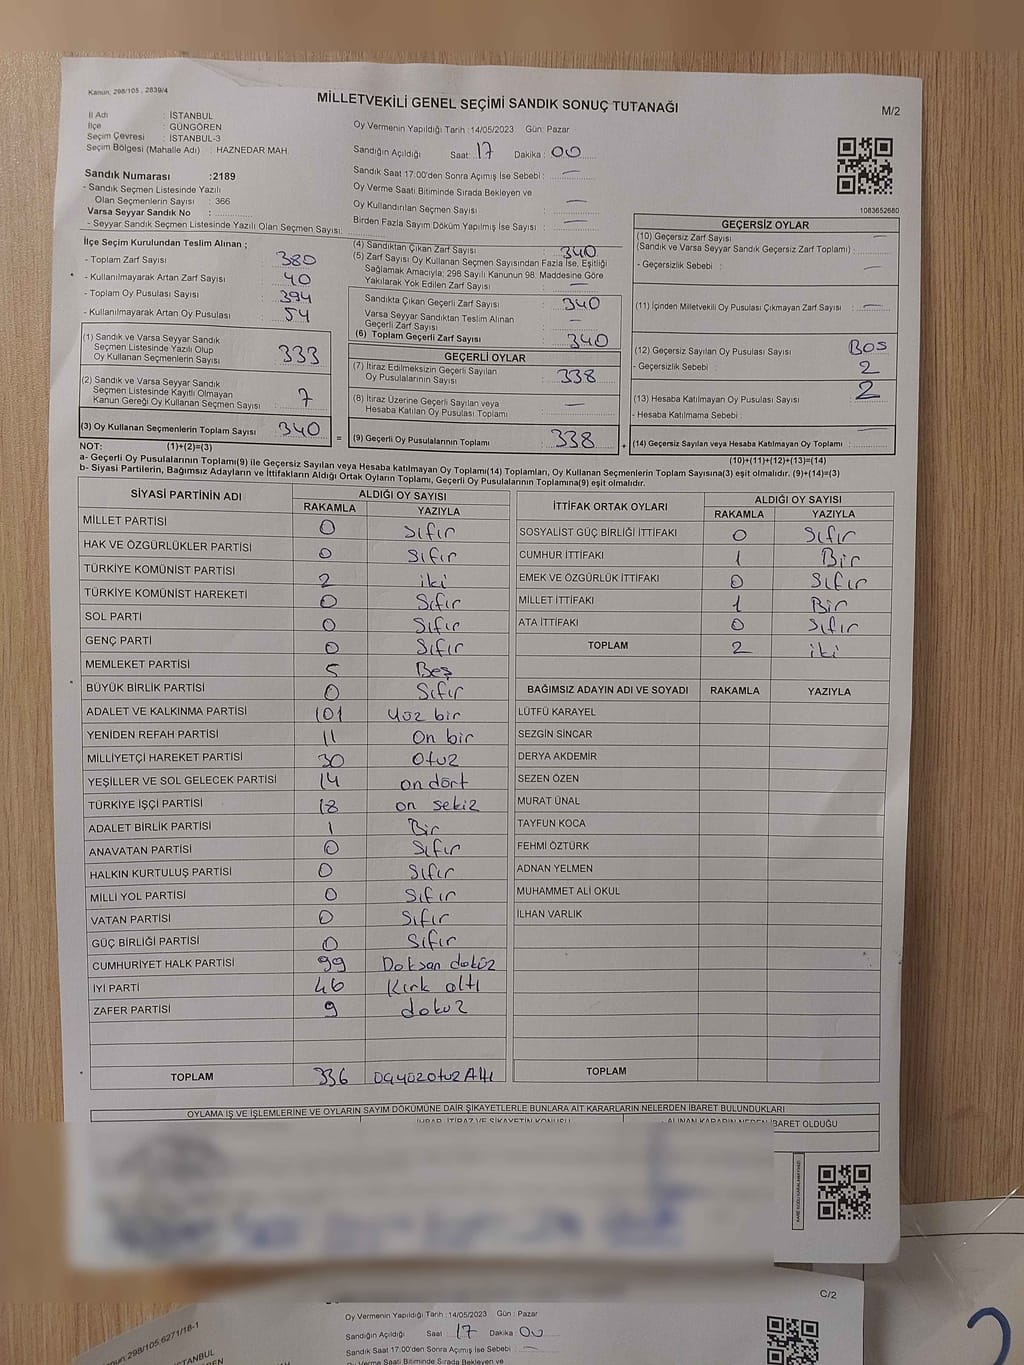 Kanun, 298/105, 2839/4
MİLLETVEKİLİ GENEL SEÇİMİ SANDIK SONUÇ TUTANAĞI
M/2
İl Adı : İSTANBUL
İlçe : GÜNGÖREN
Seçim Çevresi : İSTANBUL-3
Seçim Bölgesi (Mahalle Adı) : HAZNEDAR MAH.
Sandık Numarası :2189
- Sandık Seçmen Listesinde Yazılı
Olan Seçmenlerin Sayısı : 366
Varsa Seyyar Sandık No :
- Seyyar Sandık Seçmen Listesinde Yazılı Olan Seçmen Sayısı:
Oy Vermenin Yapıldığı Tarih :14/05/2023 Gün: Pazar
Sandığın Açıldığı Saat: 17 Dakika : 00
Sandık Saat 17:00'den Sonra Açımış İse Sebebi : —
Oy Verme Saati Bitiminde Sırada Bekleyen ve
Oy Kullandırılan Seçmen Sayısı : —
Birden Fazla Sayım Döküm Yapılmış İse Sayısı : —
1083652680
İlçe Seçim Kurulundan Teslim Alınan ;
- Toplam Zarf Sayısı : 380
- Kullanılmayarak Artan Zarf Sayısı : 40
- Toplam Oy Pusulası Sayısı : 394
- Kullanılmayarak Artan Oy Pusulası : 54
(1) Sandık ve Varsa Seyyar Sandık
Seçmen Listesinde Yazılı Olup
Oy Kullanan Seçmenlerin Sayısı : 333
(2) Sandık ve Varsa Seyyar Sandık
Seçmen Listesinde Kayıtlı Olmayan
Kanun Gereği Oy Kullanan Seçmen Sayısı : 7
(3) Oy Kullanan Seçmenlerin Toplam Sayısı : 340
(4) Sandıktan Çıkan Zarf Sayısı : 340
(5) Zarf Sayısı Oy Kullanan Seçmen Sayısından Fazla İse, Eşitliği
Sağlamak Amacıyla; 298 Sayılı Kanunun 98. Maddesine Göre
Yakılarak Yok Edilen Zarf Sayısı : —
Sandıkta Çıkan Geçerli Zarf Sayısı : 340
Varsa Seyyar Sandıktan Teslim Alınan
Geçerli Zarf Sayısı : —
(6) Toplam Geçerli Zarf Sayısı : 340
GEÇERLİ OYLAR
(7) İtiraz Edilmeksizin Geçerli Sayılan
Oy Pusulalarının Sayısı : 338
(8) İtiraz Üzerine Geçerli Sayılan veya
Hesaba Katılan Oy Pusulası Toplamı : —
= (9) Geçerli Oy Pusulalarının Toplamı : 338
GEÇERSİZ OYLAR
(10) Geçersiz Zarf Sayısı : —
(Sandık ve Varsa Seyyar Sandık Geçersiz Zarf Toplamı)
- Geçersizlik Sebebi : —
(11) İçinden Milletvekili Oy Pusulası Çıkmayan Zarf Sayısı : —
(12) Geçersiz Sayılan Oy Pusulası Sayısı : Bos
- Geçersizlik Sebebi : 2
(13) Hesaba Katılmayan Oy Pusulası Sayısı : 2
- Hesaba Katılmama Sebebi :
+ (14) Geçersiz Sayılan veya Hesaba Katılmayan Oy Toplamı : —
NOT: (1)+(2)=(3)
(10)+(11)+(12)+(13)=(14)
a- Geçerli Oy Pusulalarının Toplamı(9) ile Geçersiz Sayılan veya Hesaba katılmayan Oy Toplamı(14) Toplamları, Oy Kullanan Seçmenlerin Toplam Sayısına(3) eşit olmalıdır. (9)+(14)=(3)
b- Siyasi Partilerin, Bağımsız Adayların ve İttifakların Aldığı Ortak Oyların Toplamı, Geçerli Oy Pusulalarının Toplamına(9) eşit olmalıdır.
SİYASİ PARTİNİN ADI ALDIĞI OY SAYISI
RAKAMLA YAZIYLA
MİLLET PARTİSİ 0 Sıfır
HAK VE ÖZGÜRLÜKLER PARTİSİ 0 Sıfır
TÜRKİYE KOMÜNİST PARTİSİ 2 iki
TÜRKİYE KOMÜNİST HAREKETİ 0 Sıfır
SOL PARTİ 0 Sıfır
GENÇ PARTİ 0 Sıfır
MEMLEKET PARTİSİ 5 Beş
BÜYÜK BİRLİK PARTİSİ 0 Sıfır
ADALET VE KALKINMA PARTİSİ 101 Yüz bir
YENİDEN REFAH PARTİSİ 11 On bir
MİLLİYETÇİ HAREKET PARTİSİ 30 Otuz
YEŞİLLER VE SOL GELECEK PARTİSİ 14 on dört
TÜRKİYE İŞÇİ PARTİSİ 18 on sekiz
ADALET BİRLİK PARTİSİ 1 Bir
ANAVATAN PARTİSİ 0 Sıfır
HALKIN KURTULUŞ PARTİSİ 0 Sıfır
MİLLİ YOL PARTİSİ 0 Sıfır
VATAN PARTİSİ 0 Sıfır
GÜÇ BİRLİĞİ PARTİSİ 0 Sıfır
CUMHURİYET HALK PARTİSİ 99 Doksan dokuz
İYİ PARTİ 46 Kırk altı
ZAFER PARTİSİ 9 dokuz
TOPLAM 336 üçyüzotuzAltı
İTTİFAK ORTAK OYLARI ALDIĞI OY SAYISI
RAKAMLA YAZIYLA
SOSYALİST GÜÇ BİRLİĞİ İTTİFAKI 0 Sıfır
CUMHUR İTTİFAKI 1 Bir
EMEK VE ÖZGÜRLÜK İTTİFAKI 0 Sıfır
MİLLET İTTİFAKI 1 Bir
ATA İTTİFAKI 0 Sıfır
TOPLAM 2 iki
BAĞIMSIZ ADAYIN ADI VE SOYADI RAKAMLA YAZIYLA
LÜTFÜ KARAYEL
SEZGİN SİNCAR
DERYA AKDEMİR
SEZEN ÖZEN
MURAT ÜNAL
TAYFUN KOCA
FEHMİ ÖZTÜRK
ADNAN YELMEN
MUHAMMET ALİ OKUL
İLHAN VARLIK
TOPLAM
OYLAMA İŞ VE İŞLEMLERİNE VE OYLARIN SAYIM DÖKÜMÜNE DAİR ŞİKAYETLERLE BUNLARA AİT KARARLARIN NELERDEN İBARET BULUNDUKLARI
İHBAR, İTİRAZ VE ŞİKAYETİN KONUSU ALINAN KARARIN NEDEN İBARET OLDUĞU
C/2
Kanun:298/105,6271/18-1
Oy Vermenin Yapıldığı Tarih :14/05/2023 Gün : Pazar
Sandığın Açıldığı Saat : 17 Dakika : 00
Sandık Saat 17:00'den Sonra Açımış İse Sebebi : —
Oy Verme Saati Bitiminde Sırada Bekleyen ve